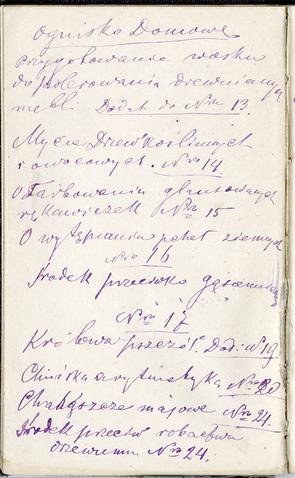 Ognisko Domowe
Przygotowanie wosku
do polerowania drewnianych
mebli. Dodat. do Nru 13.
Mycie Drzew Roślinnych
i owocowych. Nro 14.
O Farbowaniu glansowanych
rękawiczek Nro 15
O wytępianiu pcheł ziemnych
Nro 16
Środek przeciwko gąsienicom
Nro 17
Królowa pszczół. Dod: N 19.
Chińska arytmetyka Nro 20
Chrabąszcze majowe Nro 24.
Środek przeciw robactwu
drzewnemu Nro 24.